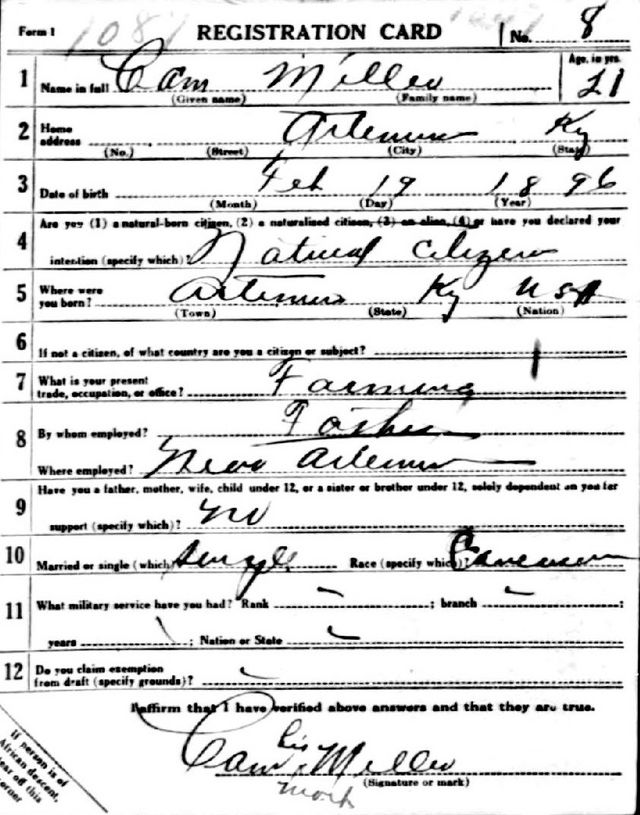 Form 1 1087 REGISTRATION CARD No. 8
1 Name in full Cam Miller Age, in yrs. 21
(Given name) (Family name)
2 Home address Artemus Ky
(No.) (Street) (City) (State)
3 Date of birth Feb 19 1896
(Month) (Day) (Year)
Are you (1) a natural-born citizen, (2) a naturalized citizen, (3) an alien, (4) or have you declared your
4 intention (specify which)? Natural Citizen
5 Where were you born? Artemus Ky USA
(Town) (State) (Nation)
6 If not a citizen, of what country are you a citizen or subject?
7 What is your present trade, occupation, or office? Farming
8 By whom employed? Father
Where employed? Near Artemus
9 Have you a father, mother, wife, child under 12, or a sister or brother under 12, solely dependent on you for
support (specify which)? no
10 Married or single (which) Single Race (specify which)? Caucasian
11 What military service have you had? Rank ; branch ;
years ; Nation or State
12 Do you claim exemption from draft (specify grounds)?
I affirm that I have verified above answers and that they are true.
his
Cam Miller
(Signature or mark)
mark
If person is of
African descent,
tear off this
corner